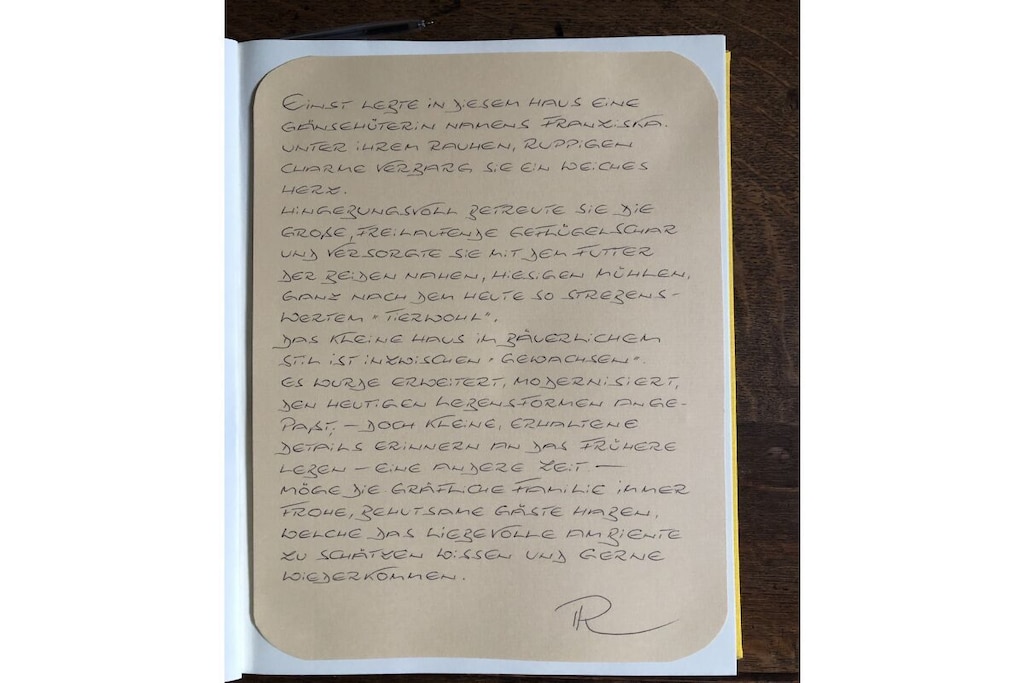 EINST LEBTE IN DIESEM HAUS EINE
GÄNSEHÜTERIN NAMENS FRANZISKA.
UNTER IHREM RAUHEN, RUPPIGEN
CHARME VERBARG SIE EIN WEICHES
HERZ.
HINGEBUNGSVOLL BETREUTE SIE DIE
GROßE, FREILAUFENDE GEFLÜGELSCHAR
UND VERSORGTE SIE MIT DEM FUTTER
DER BEIDEN NAHEN, HIESIGEN MÜHLEN,
GANZ NACH DEM HEUTE SO STREBENS-
WERTEM "TIERWOHL".
DAS KLEINE HAUS IM BÄUERLICHEM
STIL IST INZWISCHEN "GEWACHSEN".
ES WURDE ERWEITERT, MODERNISIERT,
DEN HEUTIGEN LEBENSFORMEN ANGE-
PAßT, – DOCH KLEINE, ERHALTENE
DETAILS ERINNERN AN DAS FRÜHERE
LEBEN – EINE ANDERE ZEIT –
MÖGE DIE GRÄFLICHE FAMILIE IMMER
FROHE, BEHUTSAME GÄSTE HABEN,
WELCHE DAS LIEBEVOLLE AMBIENTE
ZU SCHÄTZEN WISSEN UND GERNE
WIEDERKOMMEN.